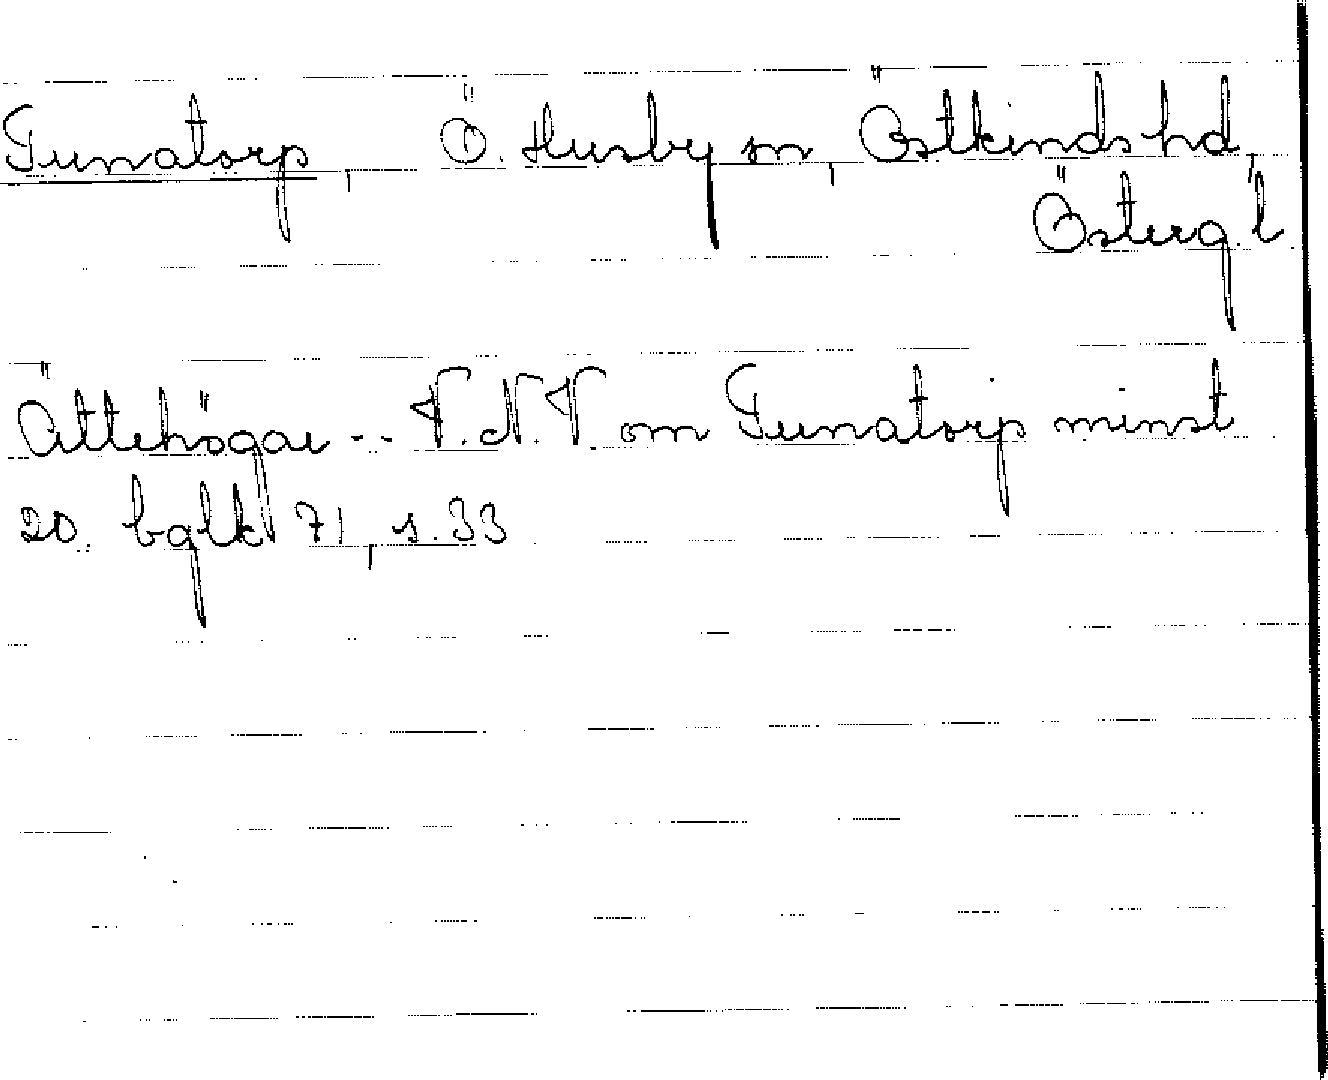 Tunatorp, Ö. Husby sn, Östkinds hd,
Österg. l.
Ättehögar -- V.N.V. om Tunatorp minst
20. bglk 71, s. 33